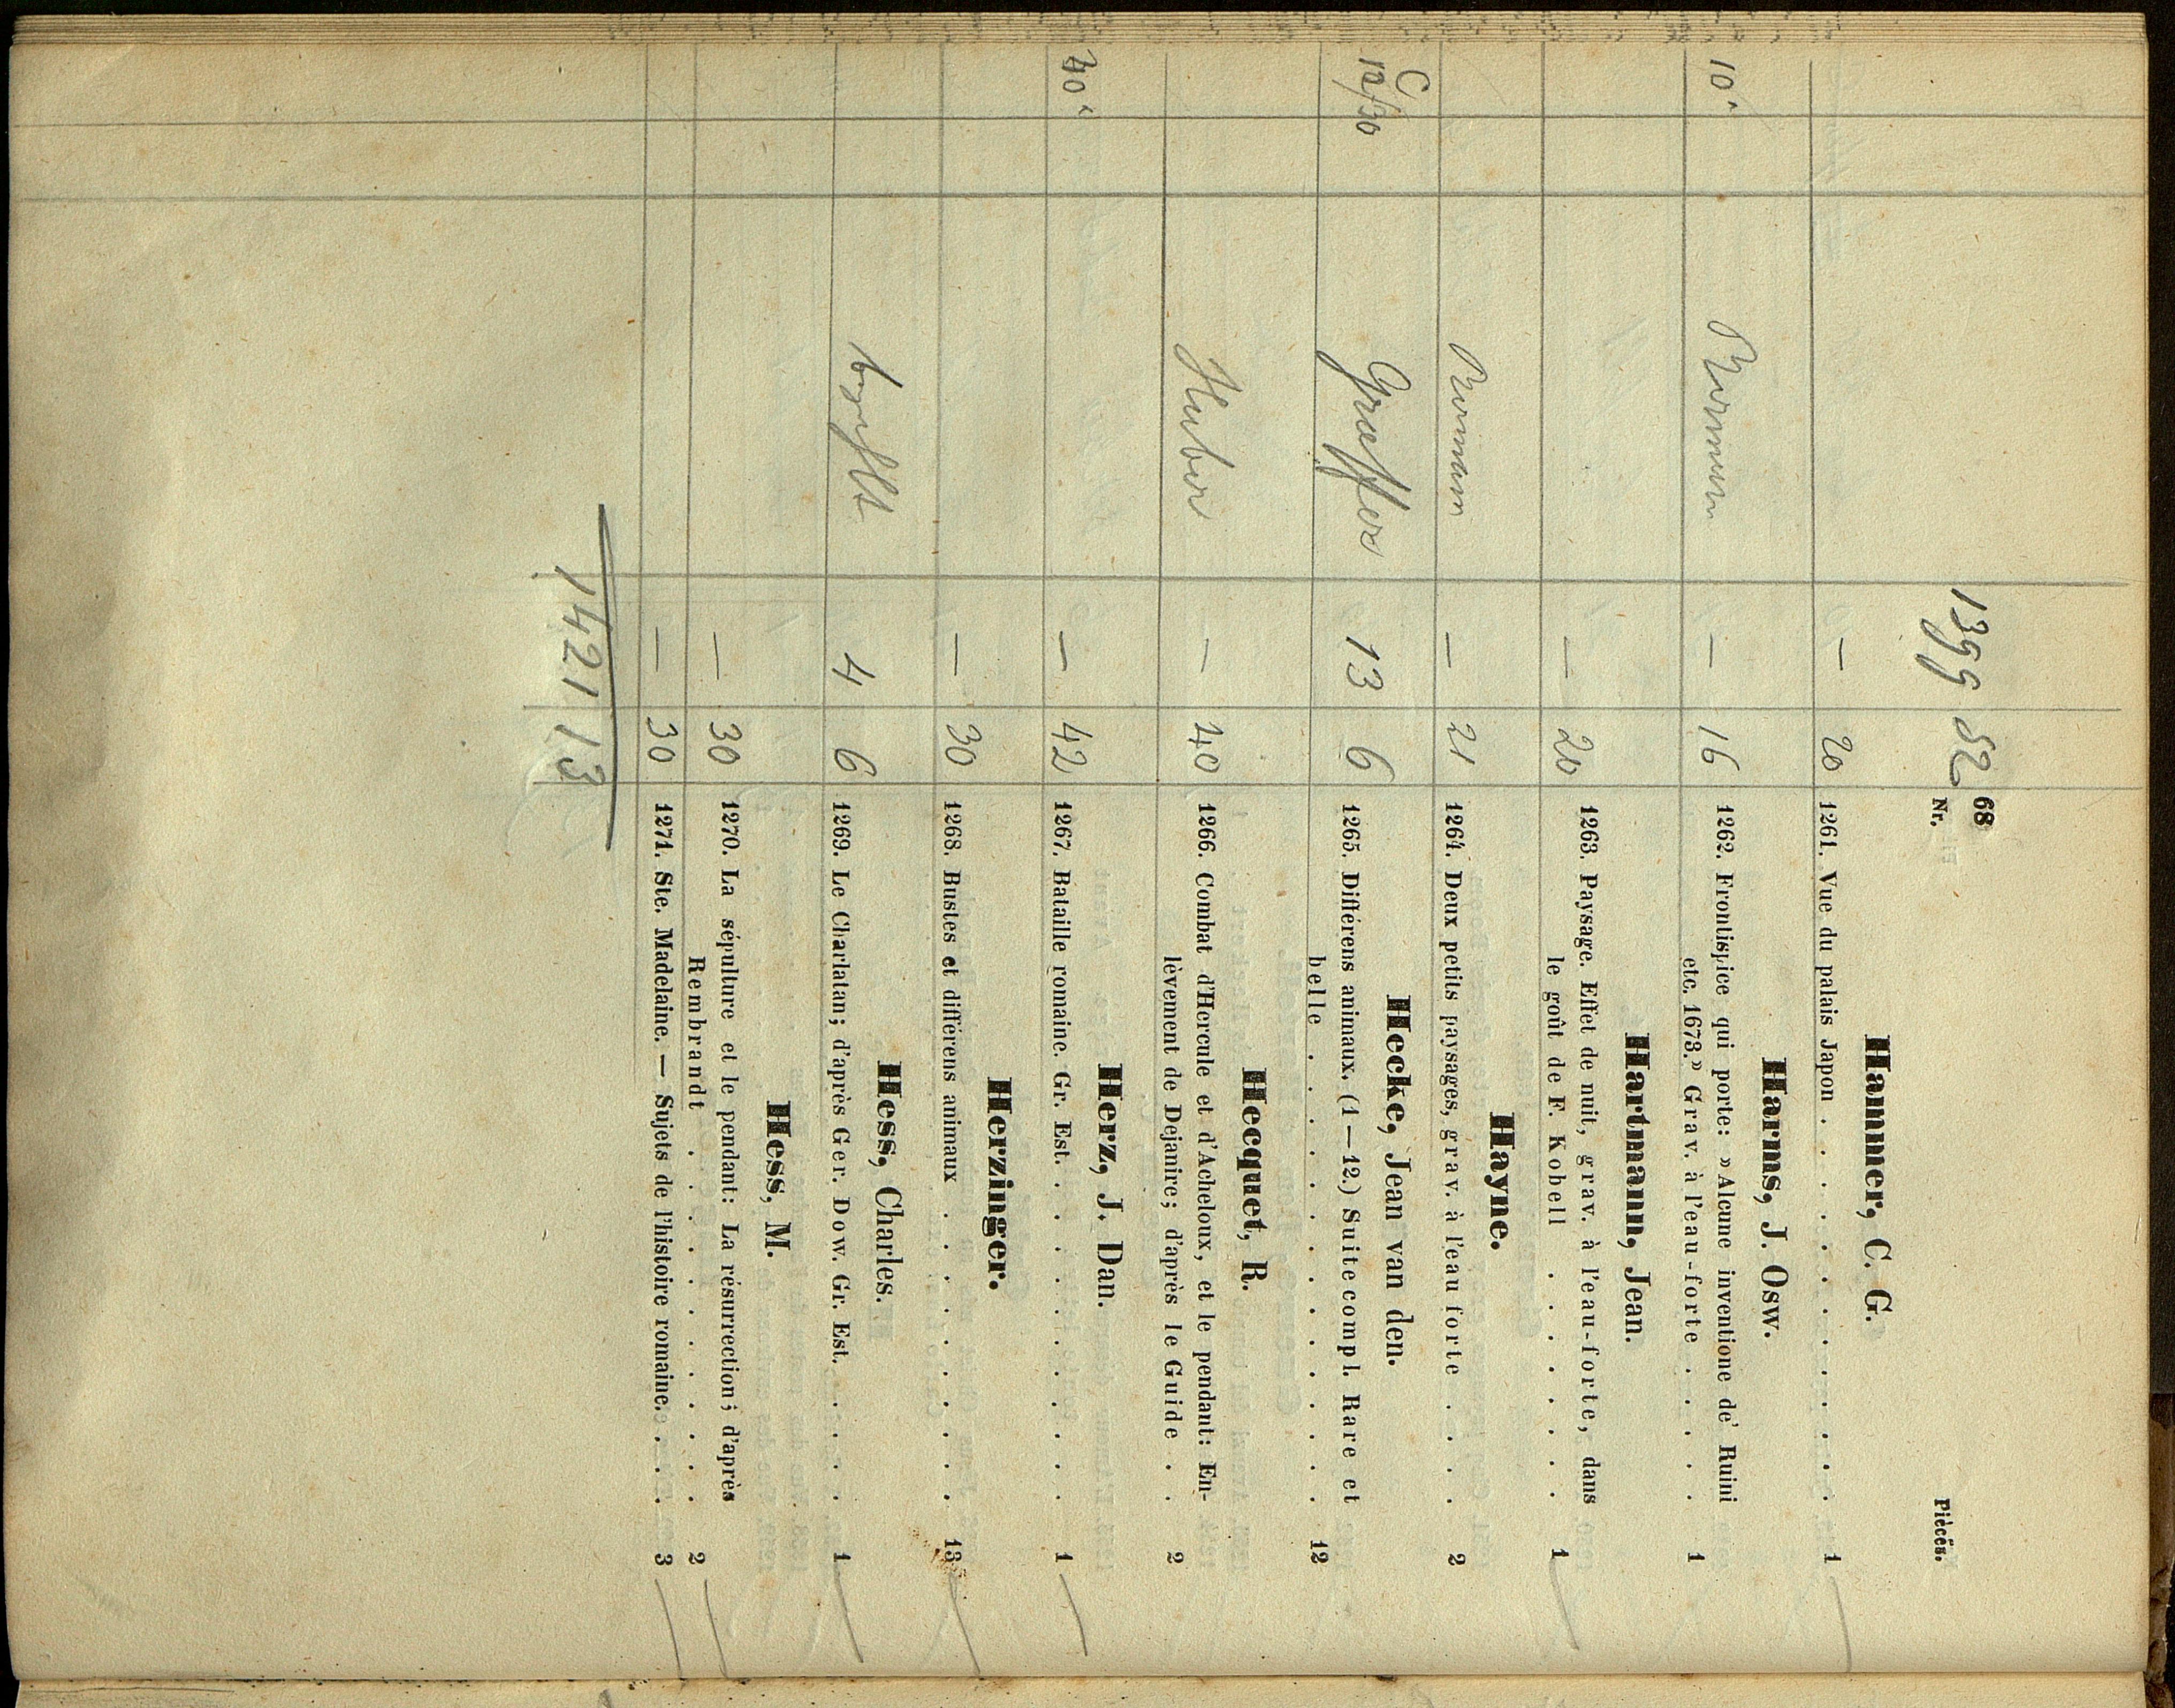 1399 52
68
Nr. Pièces.
Hammer, C. G.
— 20 1261. Vue du palais Japon . . . . . . . . . 1
Harms, J. Osw.
10 — 16 1262. Frontispice qui porte: »Alcune inventione de' Ruini
etc. 1673.» Grav. à l'eau-forte . . . . . 1
Hartmann, Jean.
— 20 1263. Paysage. Effet de nuit, grav. à l'eau-forte, dans
le goût de F. Kobell . . . . . . 1
Hayne.
— 21 1264. Deux petits paysages, grav. à l'eau forte . . . . 2
Hecke, Jean van den.
C
12/30 Graeffer 13 6 1265. Différens animaux. (1—12.) Suite compl. Rare et
belle . . . . . . . . . . . . 12
Hecquet, R.
Huber — 40 1266. Combat d'Hercule et d'Acheloux, et le pendant: En-
lèvement de Dejanire; d'après le Guide . . 2
Herz, J. Dan.
40 — 42 1267. Bataille romaine. Gr. Est. . . . . . . . . 1
Herzinger.
— 30 1268. Bustes et différens animaux . . . . . . . 13
Hess, Charles.
4 6 1269. Le Charlatan; d'après Ger. Dow. Gr. Est. . . . . 1
Hess, M.
— 30 1270. La sépulture et le pendant: La résurrection; d'après
Rembrandt . . . . . . . . . . 2
— 30 1271. Ste. Madelaine. — Sujets de l'histoire romaine. . . . 3
1421 13